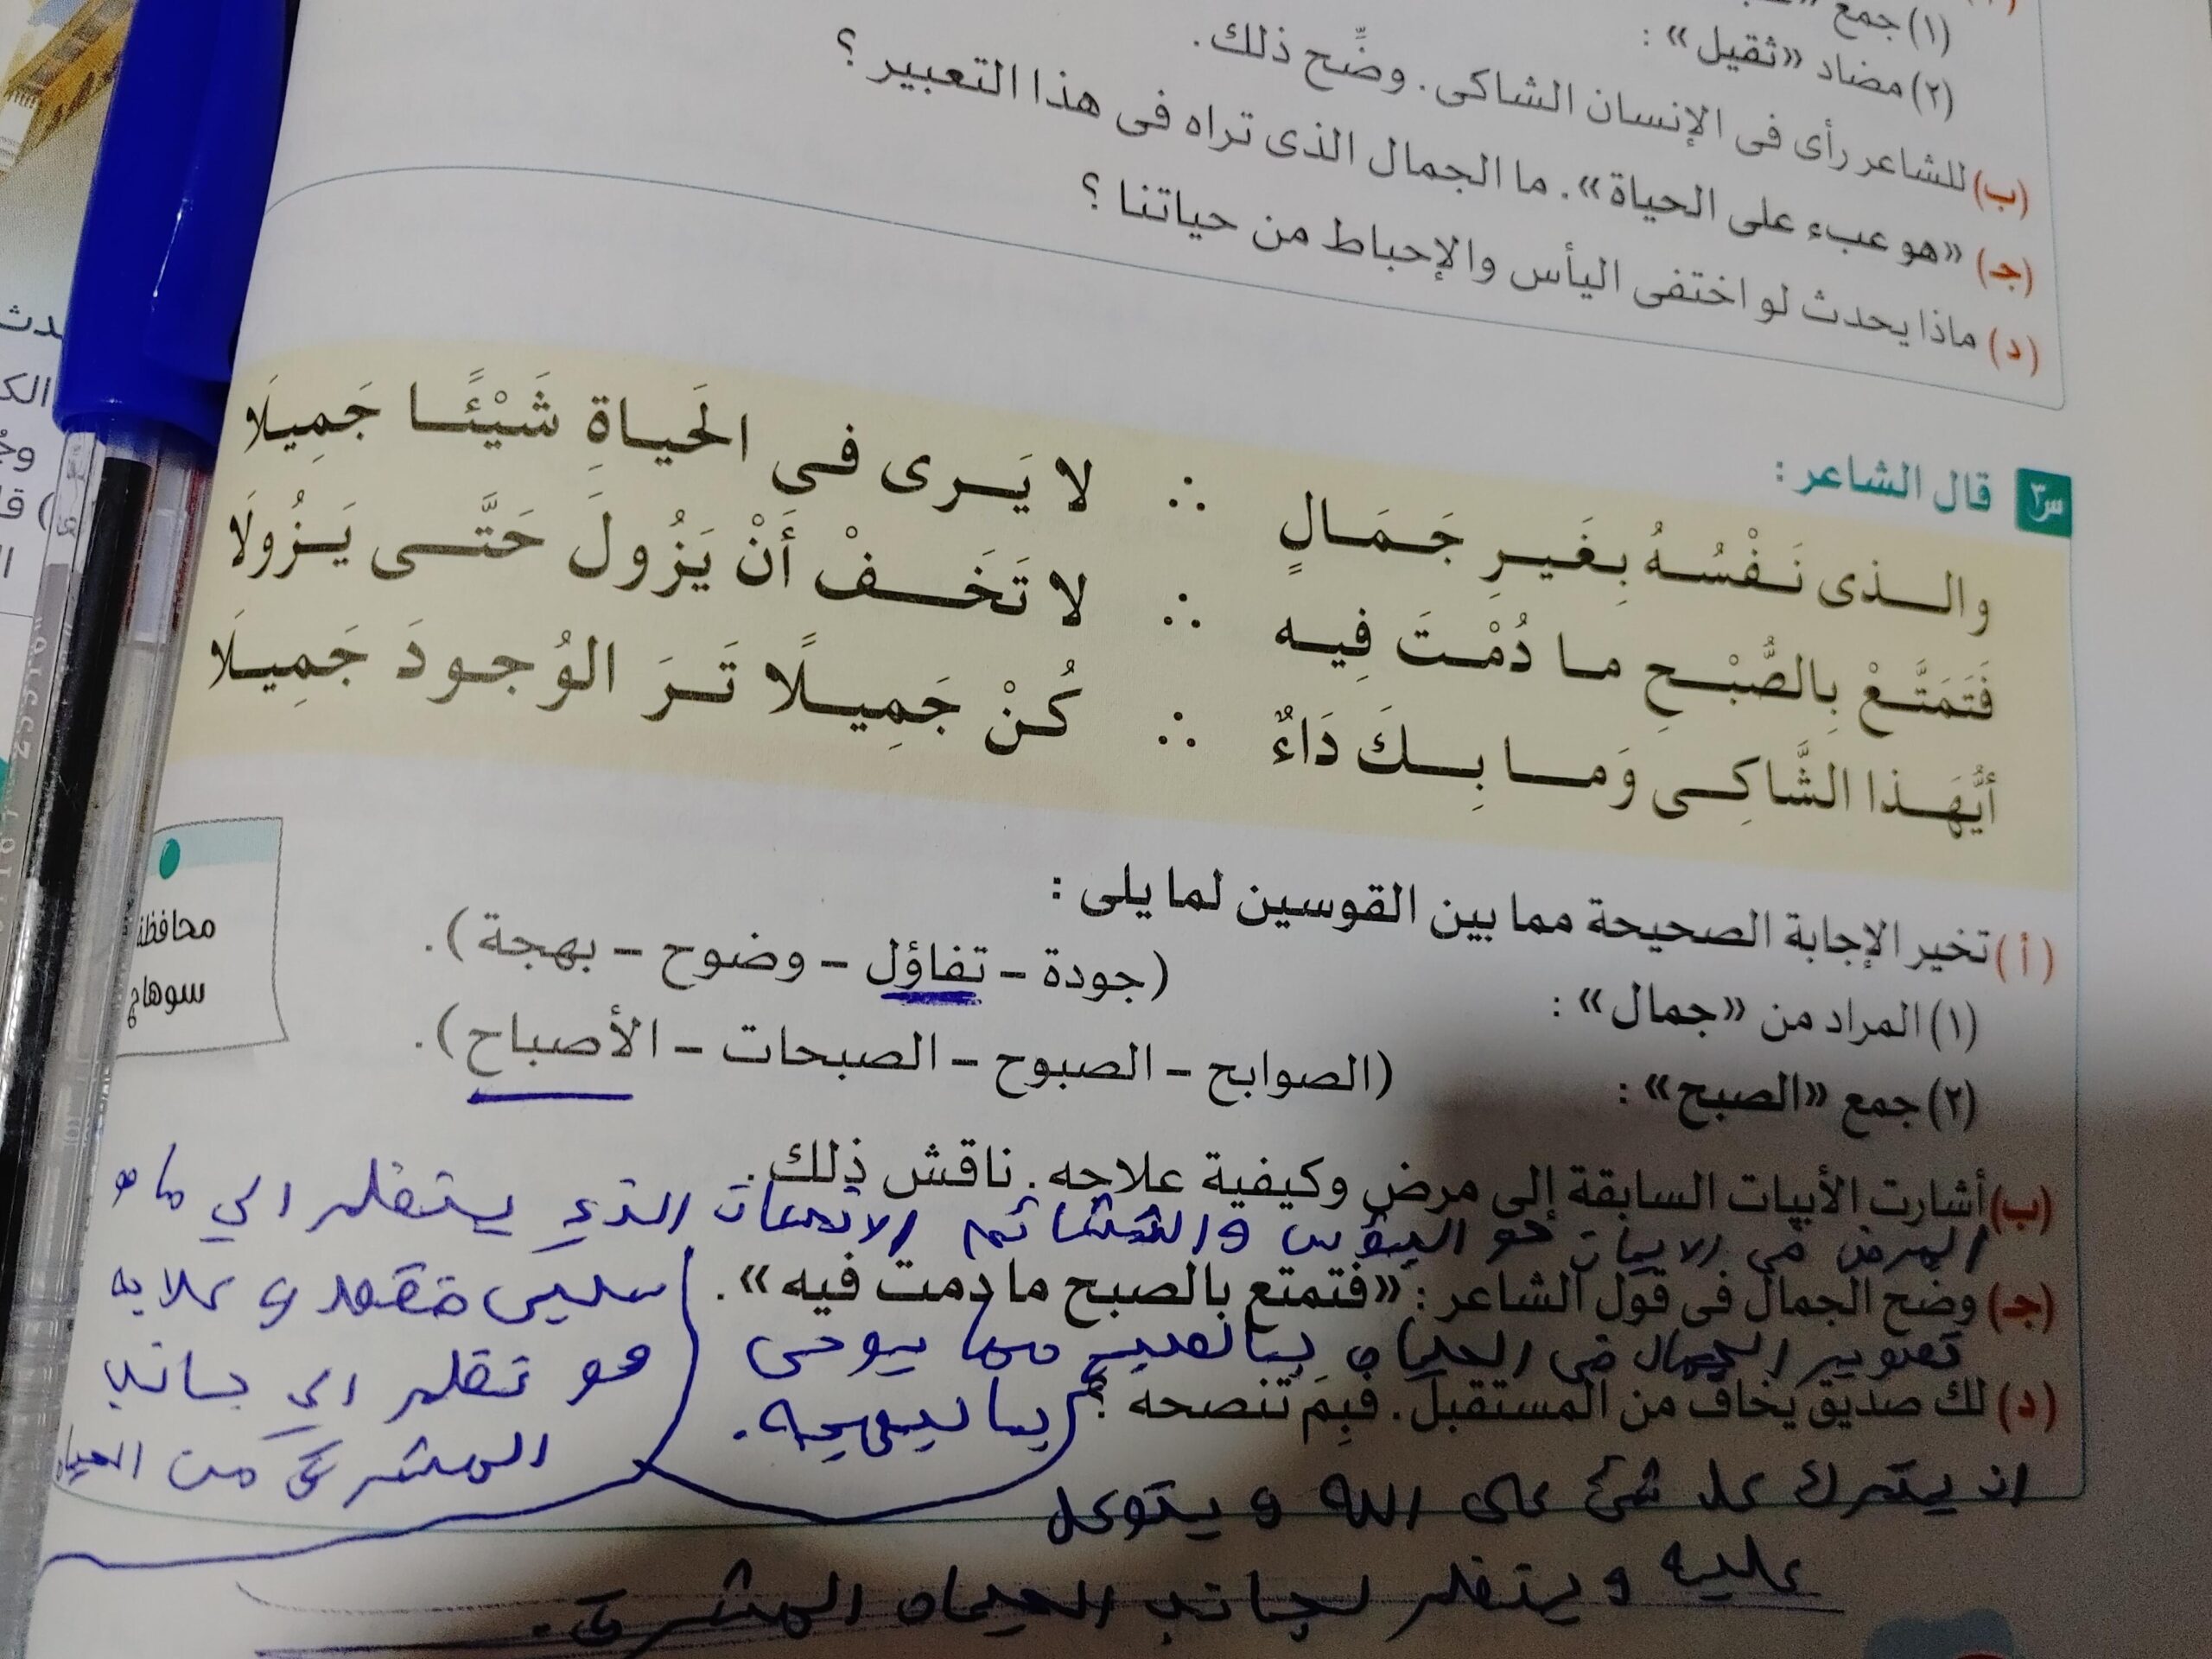 (١) جمع «
(٢) مضاد «ثقيل» :
(ب) للشاعر رأى فى الإنسان الشاكى . وضِّح ذلك .
(جـ) «هو عبء على الحياة» . ما الجمال الذى تراه فى هذا التعبير ؟
(د) ماذا يحدث لو اختفى اليأس والإحباط من حياتنا ؟
س٣ قال الشاعر :
والـذى نَـفْسُـهُ بِغَيـرِ جَـمَـالٍ ∴ لا يَـرى فـى الحَيـاةِ شَيْئًـا جَمِيلَا
فَتَمَتَّـعْ بِالصُّبْـحِ مـا دُمْـتَ فِيـه ∴ لا تَخَـفْ أَنْ يَزُولَ حَتَّـى يَـزُولَا
أيُّهَـذا الشَّاكِـى وَمـا بِـكَ دَاءٌ ∴ كُـنْ جَمِيـلًا تَـرَ الوُجـودَ جَمِيـلَا
(أ) تخير الإجابة الصحيحة مما بين القوسين لما يلى :
(١) المراد من «جمال» : (جودة – تفاؤل – وضوح – بهجة) .
(٢) جمع «الصبح» : (الصوابح – الصبوح – الصبحات – الأصباح) .
محافظة
سوهاج
(ب) أشارت الأبيات السابقة إلى مرض وكيفية علاجه . ناقش ذلك .
المرض فى الابيات هو اليؤس والتشائم الانسان الذي ينظر الي ما هو
سلبى فقط و علاجه
هو تنظر الي جانب
المشرق من الحياه
(جـ) وضح الجمال فى قول الشاعر : «فتمتع بالصبح ما دمت فيه» .
تصوير الجمال فى الحياه بالصبح مما يوحى
بالبهجه .
(د) لك صديق يخاف من المستقبل . فبِمَ تنصحه ؟
ان يترك كل شئ على الله و يتوكل
عليه و ينظر لجانب الحياه المشرق .